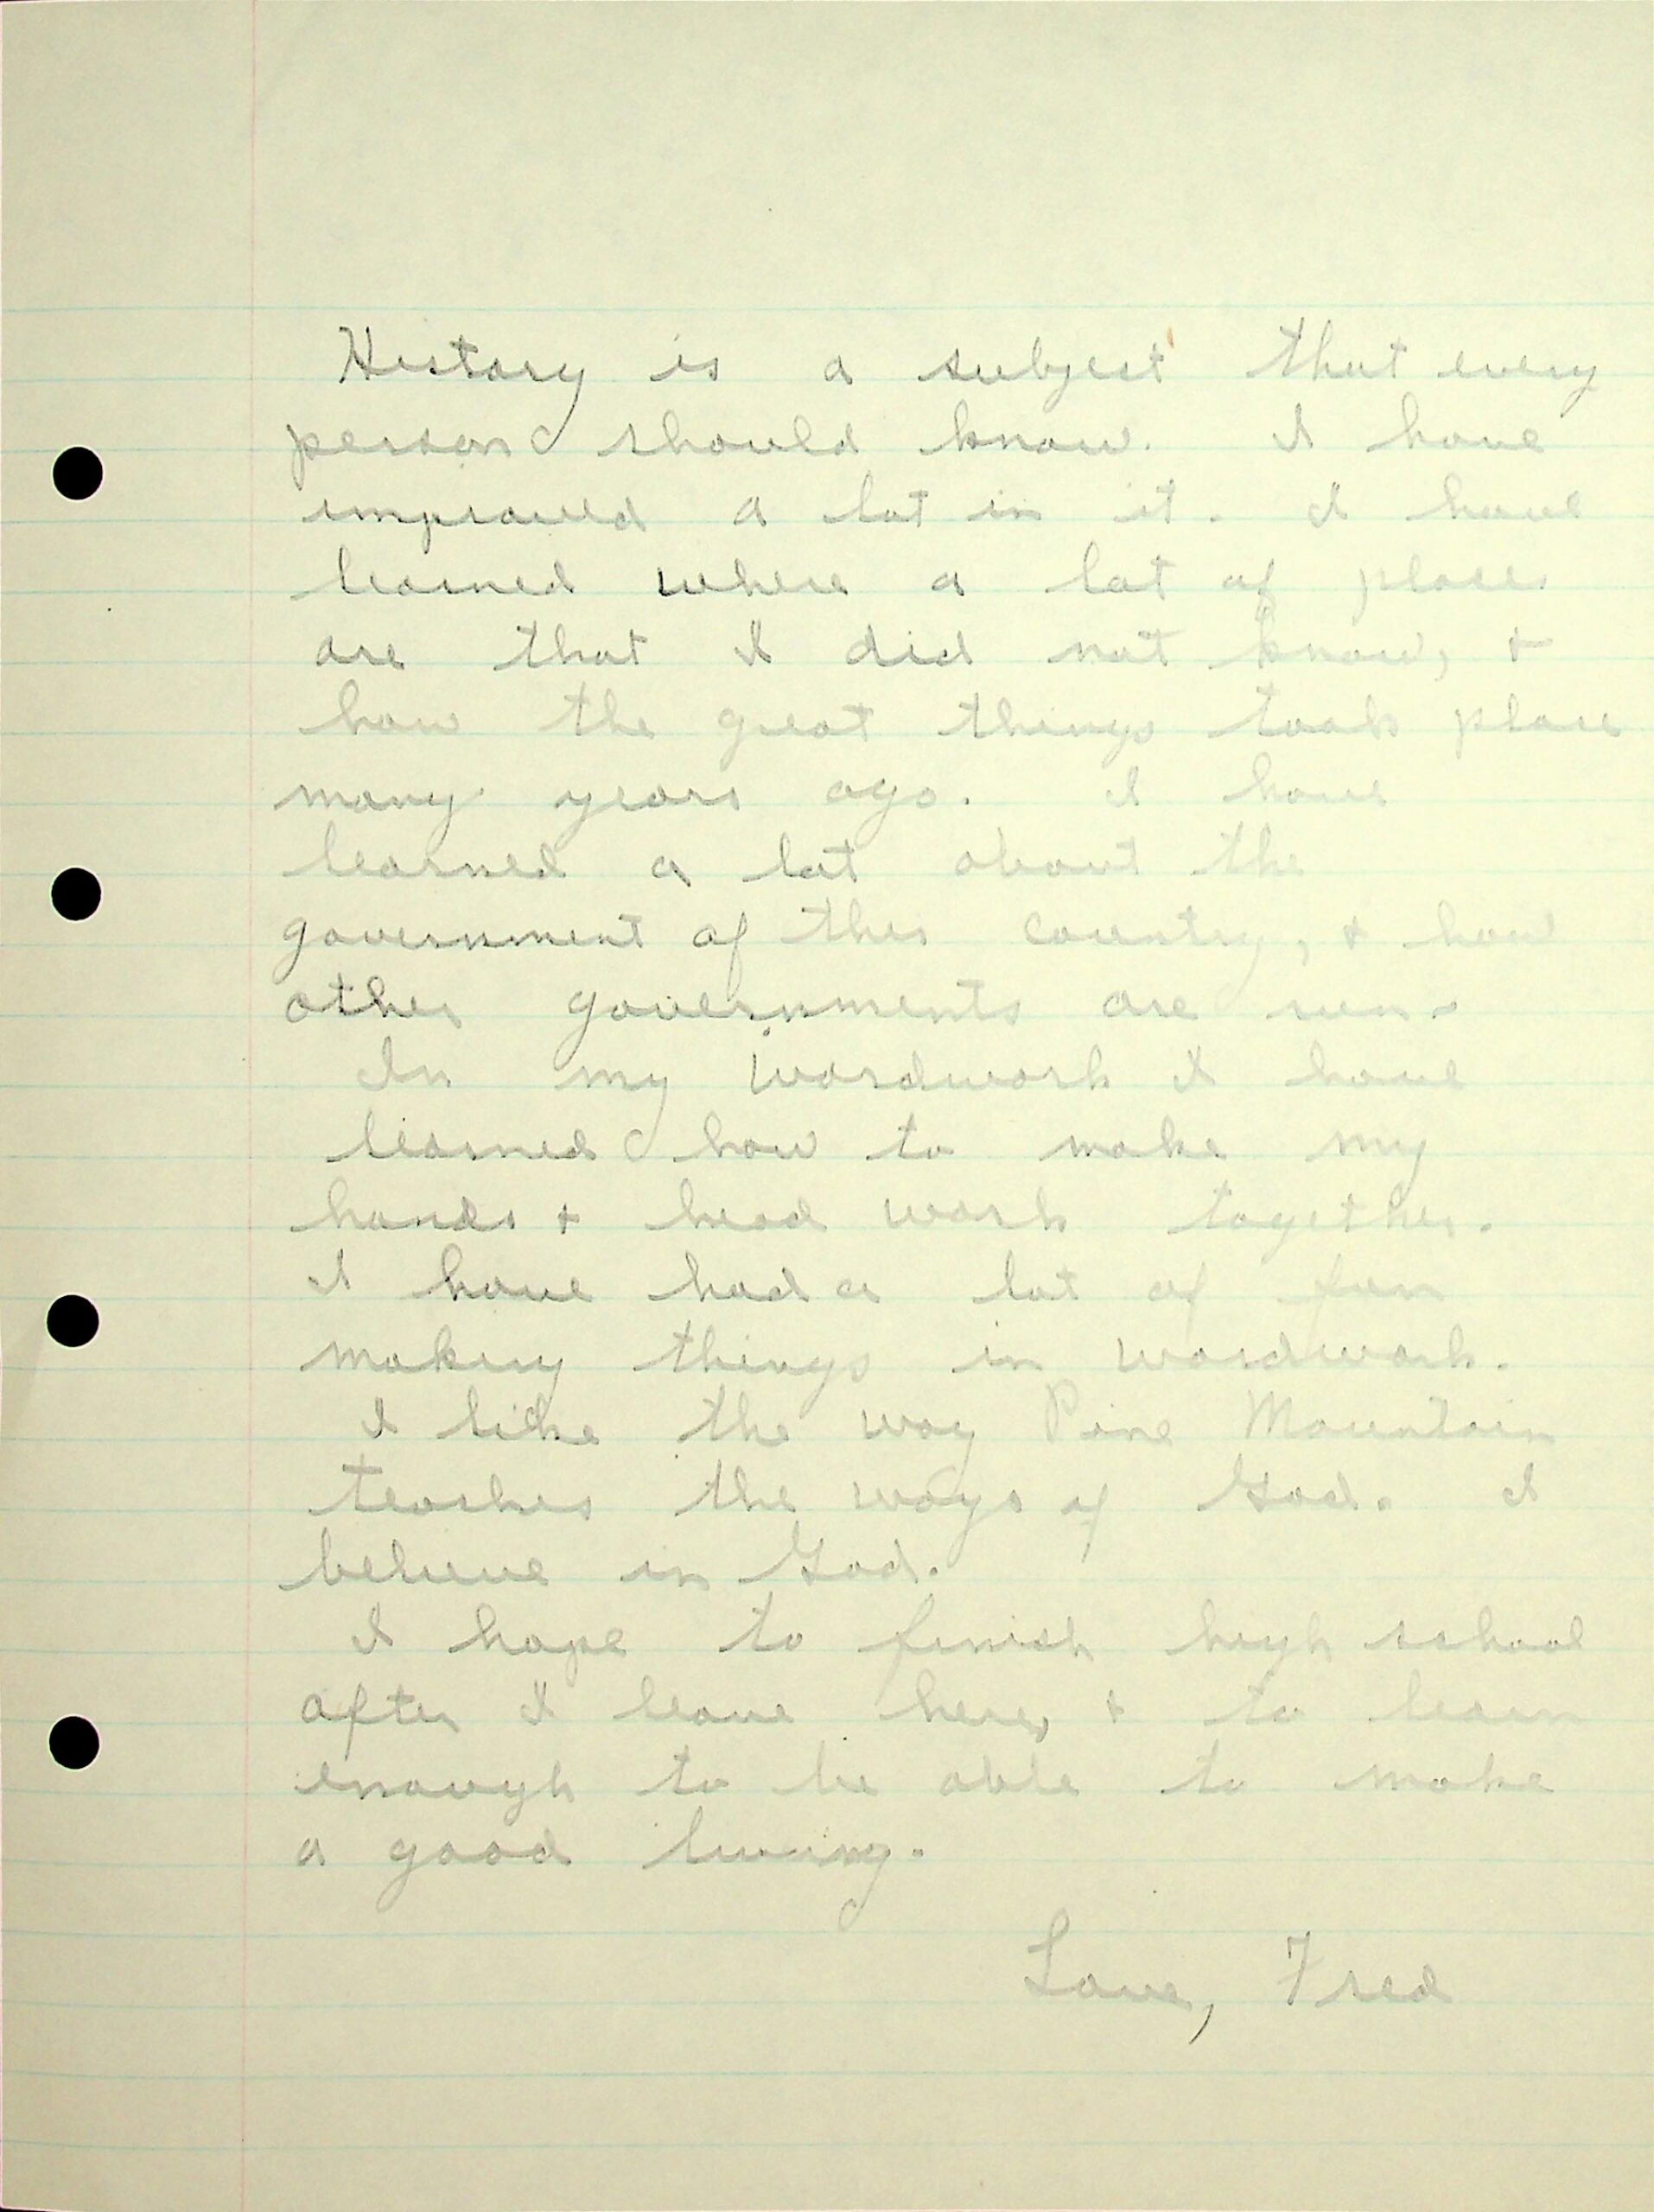 History is a subject that every
person should know. I have
improved a lot in it. I have
learned where a lot of places
are that I did not know, +
how the great things took place
many years ago. I have
learned a lot about the
government of this country, + how
other governments are run.
In my woodwork I have
learned how to make my
hands + head work together.
I have had a lot of fun
making things in woodwork.
I like the way Pine Mountain
teaches the ways of God. I
believe in God.
I hope to finish high school
after I leave here, + to learn
enough to be able to make
a good living.
Love, Fred